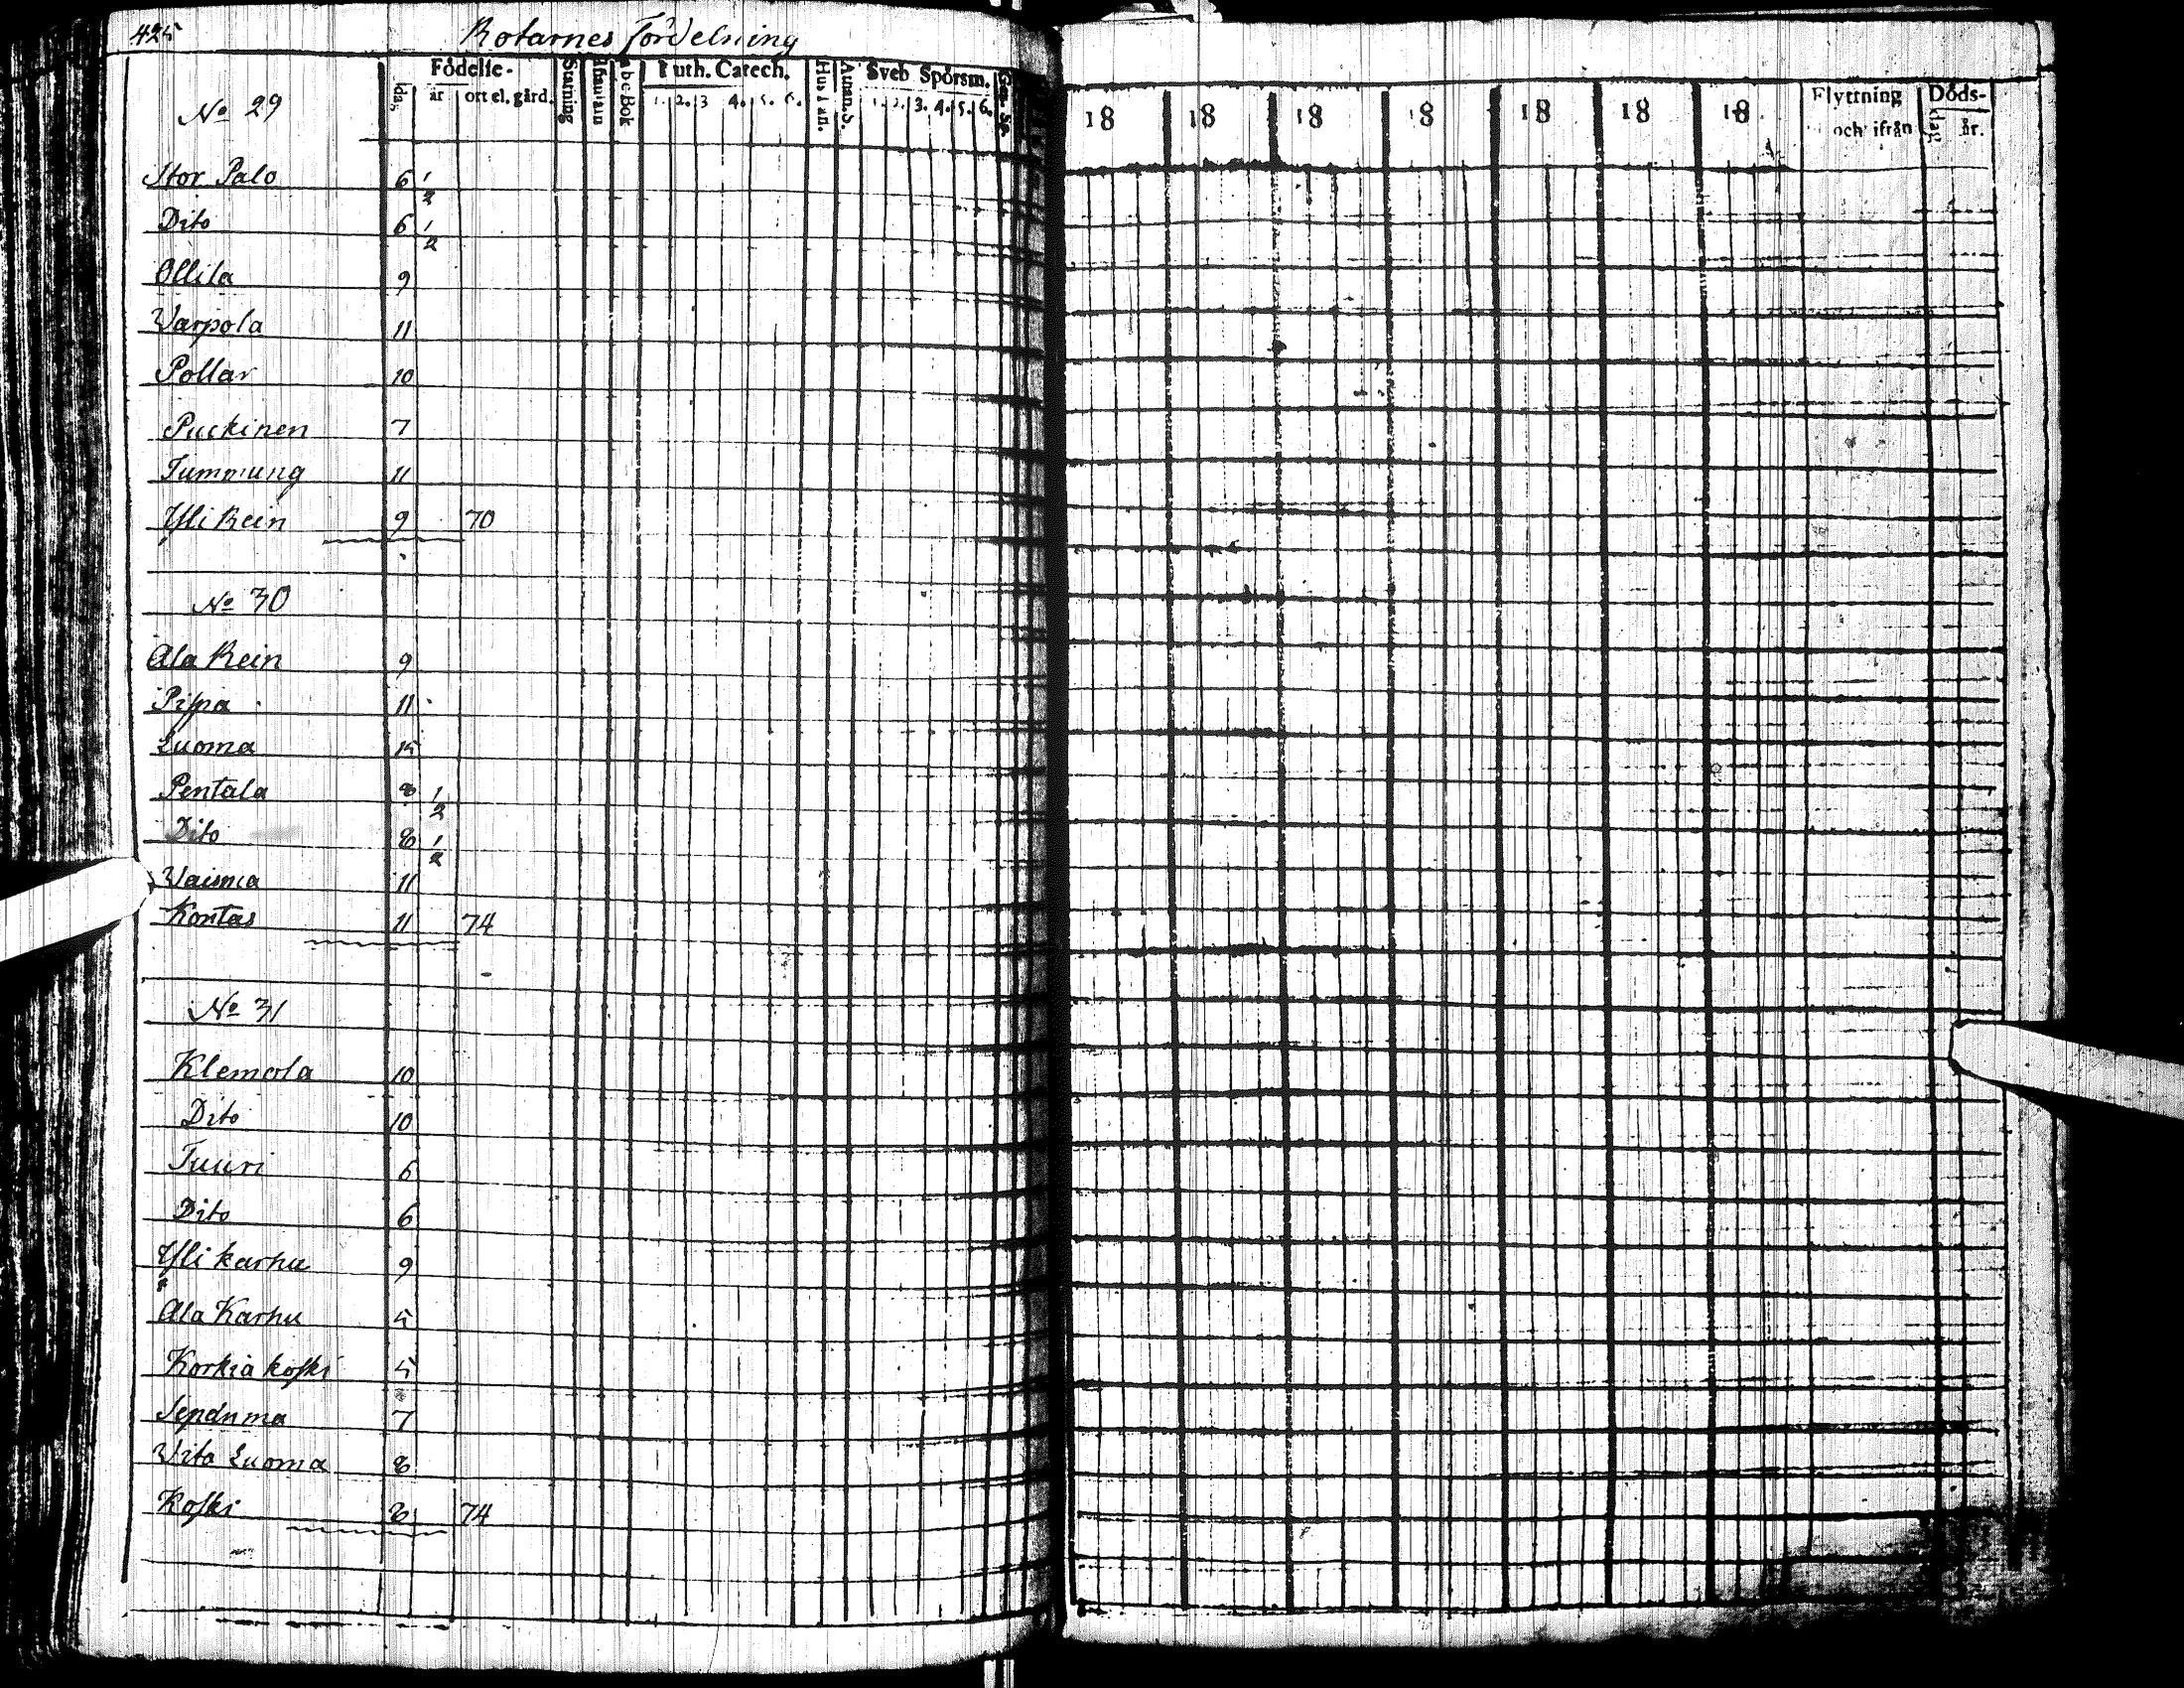 425 Rotarnes Fördelning
Födelse-
dag år ort el. gård.
Stafning
a b c Bok
Luth. Catech.
1. 2. 3 4. 5. 6.
Hustafl.
Athan. S.
Sveb Spörsm.
1. 2. 3. 4. 5. 6.
18 18 18 18 18 18 18
Flyttning
och ifrån
Döds-
dag år.
No 29
Stor Palo 6 1/2
Dito 6 1/2
Ollila 9
Warpola 11
Pollar 10
Puckinen 7
Tummung 11
Yli Rein 9 70
No 30
Ala Rein 9
Pispa 11
Luoma 15
Pentala 8 1/2
Dito 8 1/2
Wainia 11
Kontas 11 74
No 31
Klemola 10
Dito 10
Tuuri 6
Dito 6
Yli karhu 9
Ala Karhu 5
Korkia koski 5
7
Wito Luoma 8
Koski 8 74